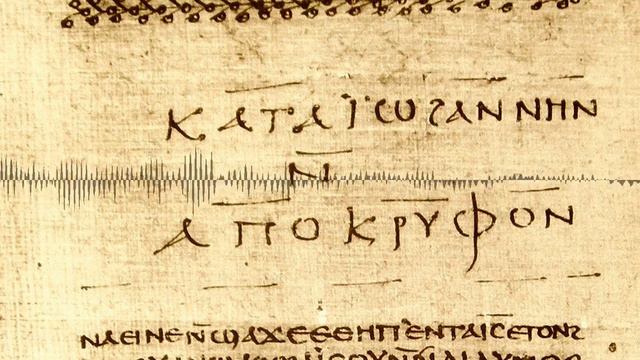 ⲕⲁⲧⲁⲓ̈ⲱϩⲁⲛⲛⲏⲛ
ⲛ̄
ⲁⲡⲟⲕⲣⲩⲫⲟⲛ
ⲛⲁⲉⲓⲛⲉⲛ̄ϣⲁϫⲉⲉⲑⲏⲡ`ⲉⲛⲧⲁⲓ̅ⲥ̅ⲉⲧⲟⲛϩ